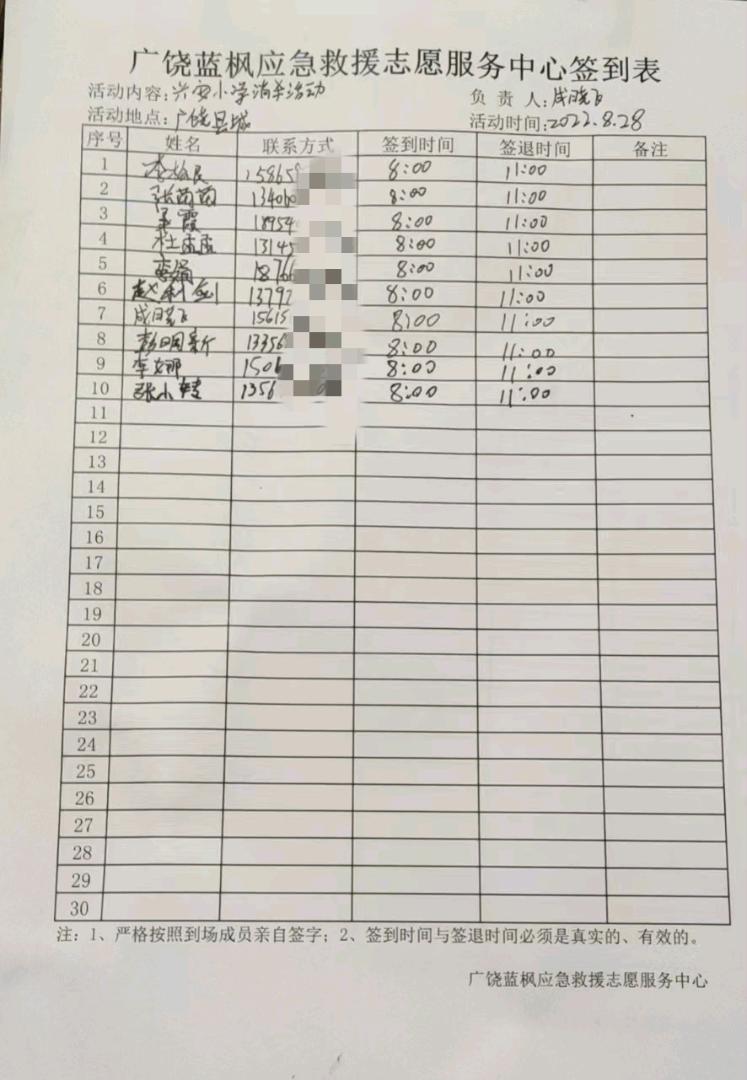 广饶蓝枫应急救援志愿服务中心签到表
活动内容:兴安小学消杀活动 负责人:成晓飞
活动地点:广饶县城 活动时间:2022.8.28
序号 姓名 联系方式 签到时间 签退时间 备注
1 15865 8:00 11:00
2 张茜茜 13406 8:00 11:00
3 霞 18954 8:00 11:00
4 杜 13145 8:00 11:00
5 18766 8:00 11:00
6 赵利剑 13792 8:00 11:00
7 成晓飞 15615 8:00 11:00
8 彭明新 13356 8:00 11:00
9 李娜 1506 8:00 11:00
10 张小 1356 8:00 11:00
11
12
13
14
15
16
17
18
19
20
21
22
23
24
25
26
27
28
29
30
注:1、严格按照到场成员亲自签字;2、签到时间与签退时间必须是真实的、有效的。
广饶蓝枫应急救援志愿服务中心